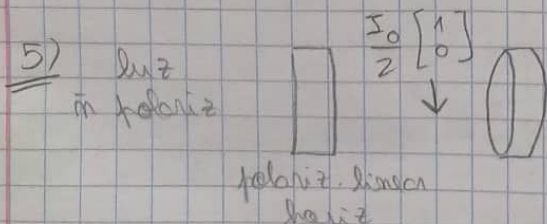 5) luz
ñ polariz
I₀/2 [1 0]
↓
polariz. linear
horiz